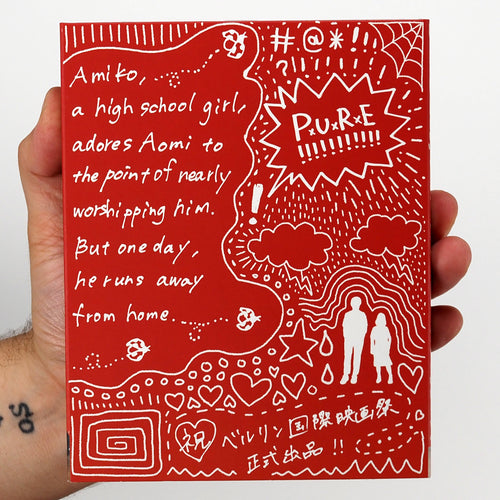 Amiko,
a high school girl,
adores Aomi to
the point of nearly
worshipping him.
But one day,
he runs away
from home...
#@*!
?!!!!!!!
P×U×R×E
!!!!!!!!!!!
!
祝
ベルリン国際映画祭
正式出品!!